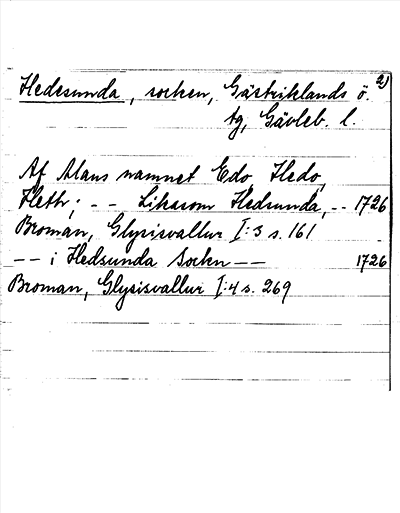 Hedesunda, socken, Gästriklands ö. 2)
tg, Gävleb. l.
Af Mans namnet Edo, Hedo,
Heth; - - Likasom Hedsunda, - - 1726
Broman, Glysisvallur I:3 s. 161
- - i Hedsunda Socken - - 1726
Broman, Glysisvallur I:4 s. 269